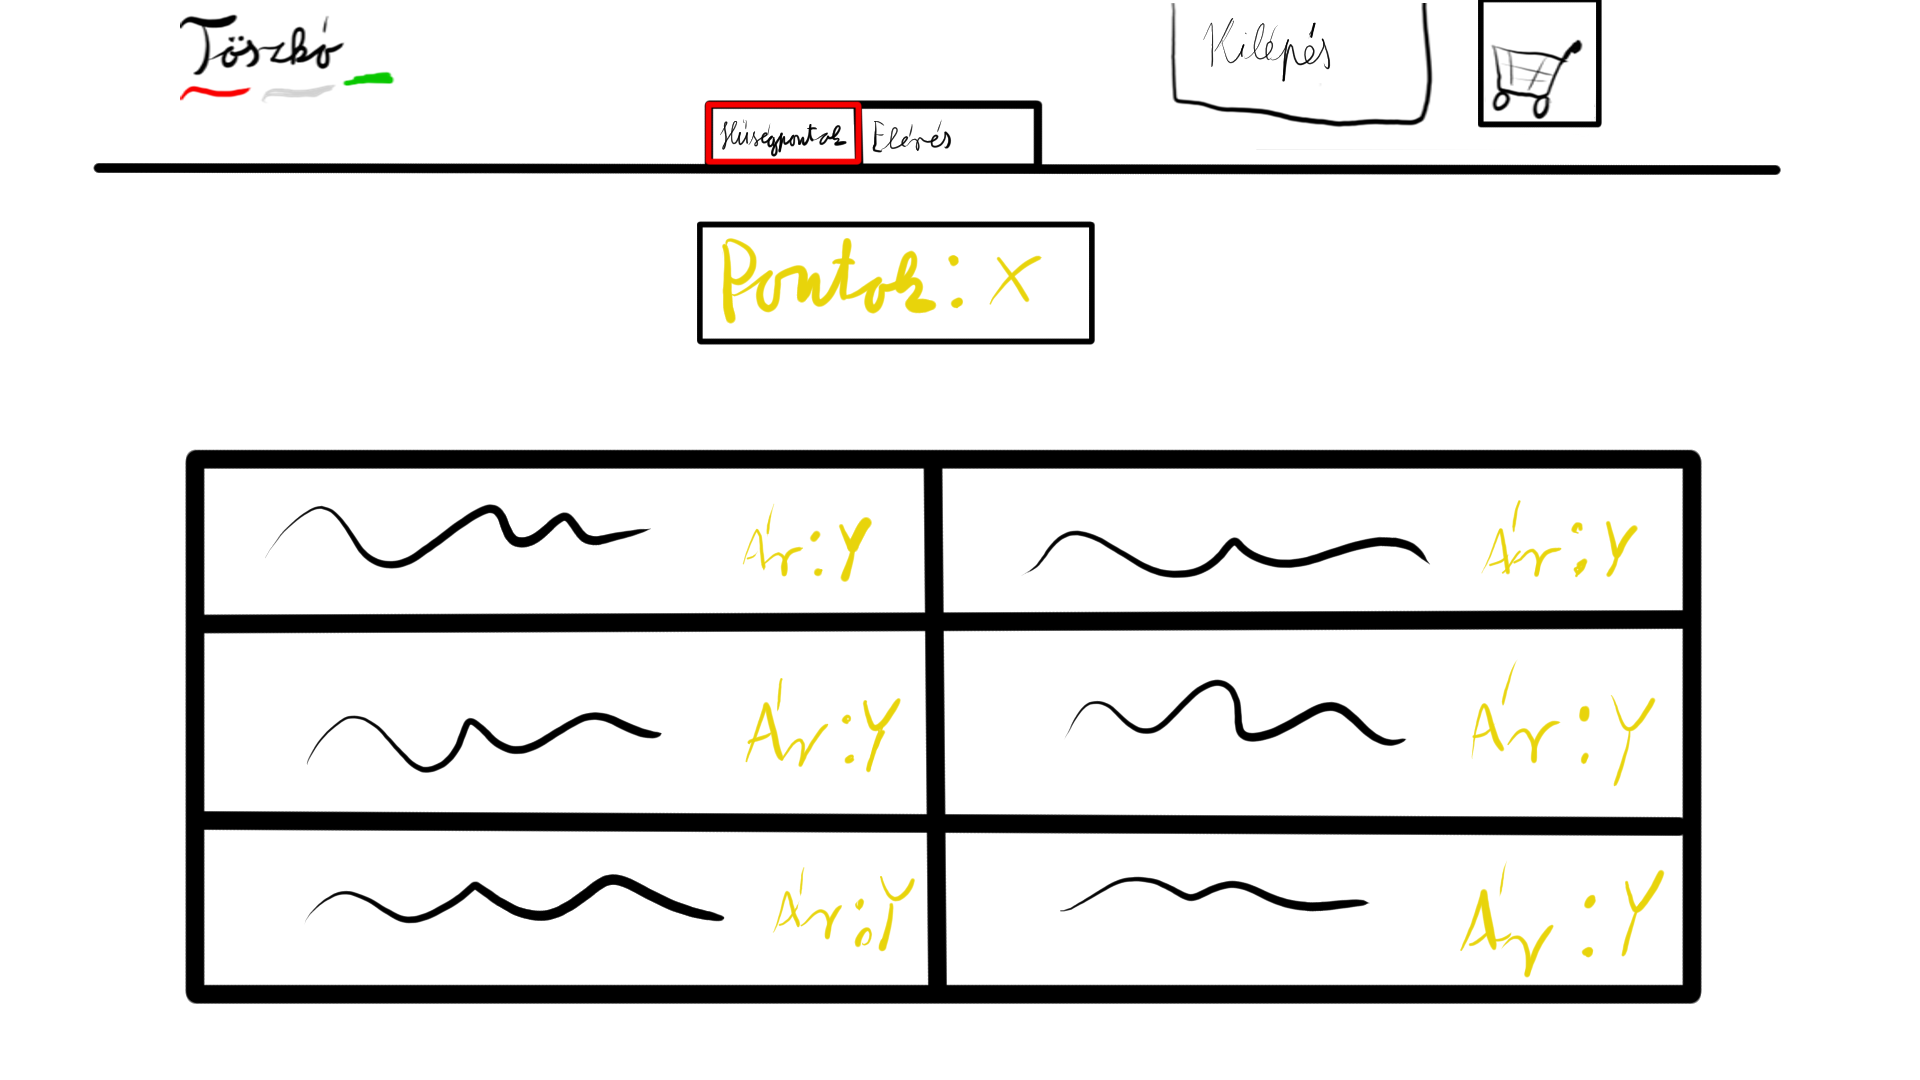 Töszkó
Kilépés
Hűségpontok Elérés
Pontok: X
Ár: Y Ár: Y
Ár: Y Ár: Y
Ár: Y Ár: Y